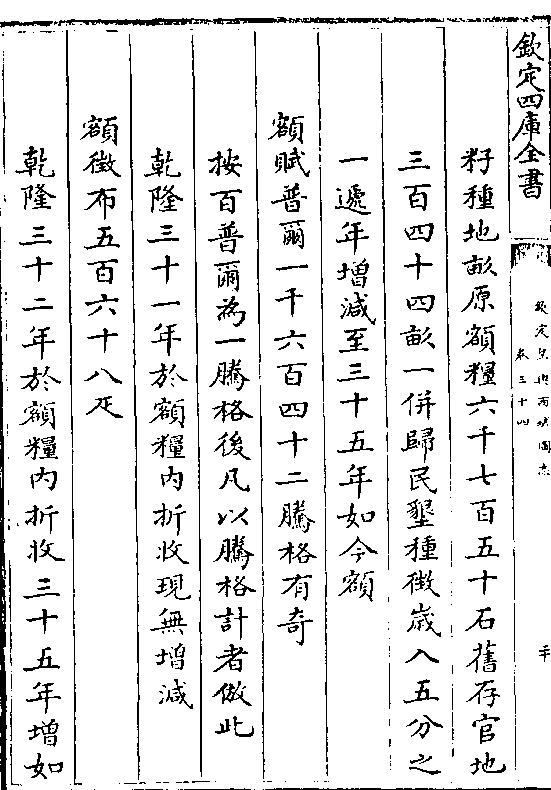 欽定四庫全書
欽定皇輿西域圖志
卷三十四
籽種地畝原額糧六千七百五十石舊存官地
三百四十四畝一併歸民墾種徵歲入五分之
一遞年增減至三十五年如今額
額賦普爾一千六百四十二騰格有奇
按百普爾為一騰格後凡以騰格計者倣此
乾隆三十一年於額糧內折收現無增減
額徵布五百六十八疋
乾隆三十二年於額糧內折收三十五年增如